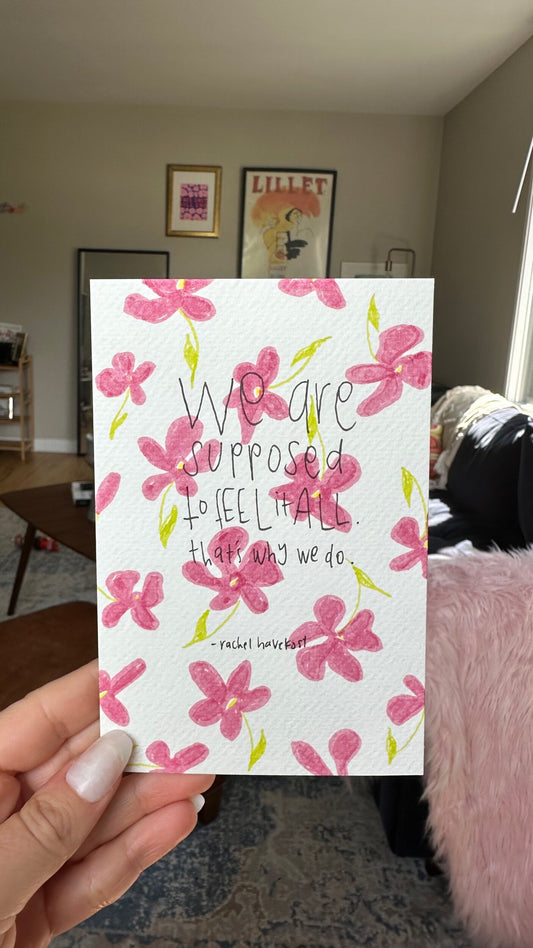 LILLET
We are
supposed
to fEEL it ALL.
that's why we do.
- rachel havekost